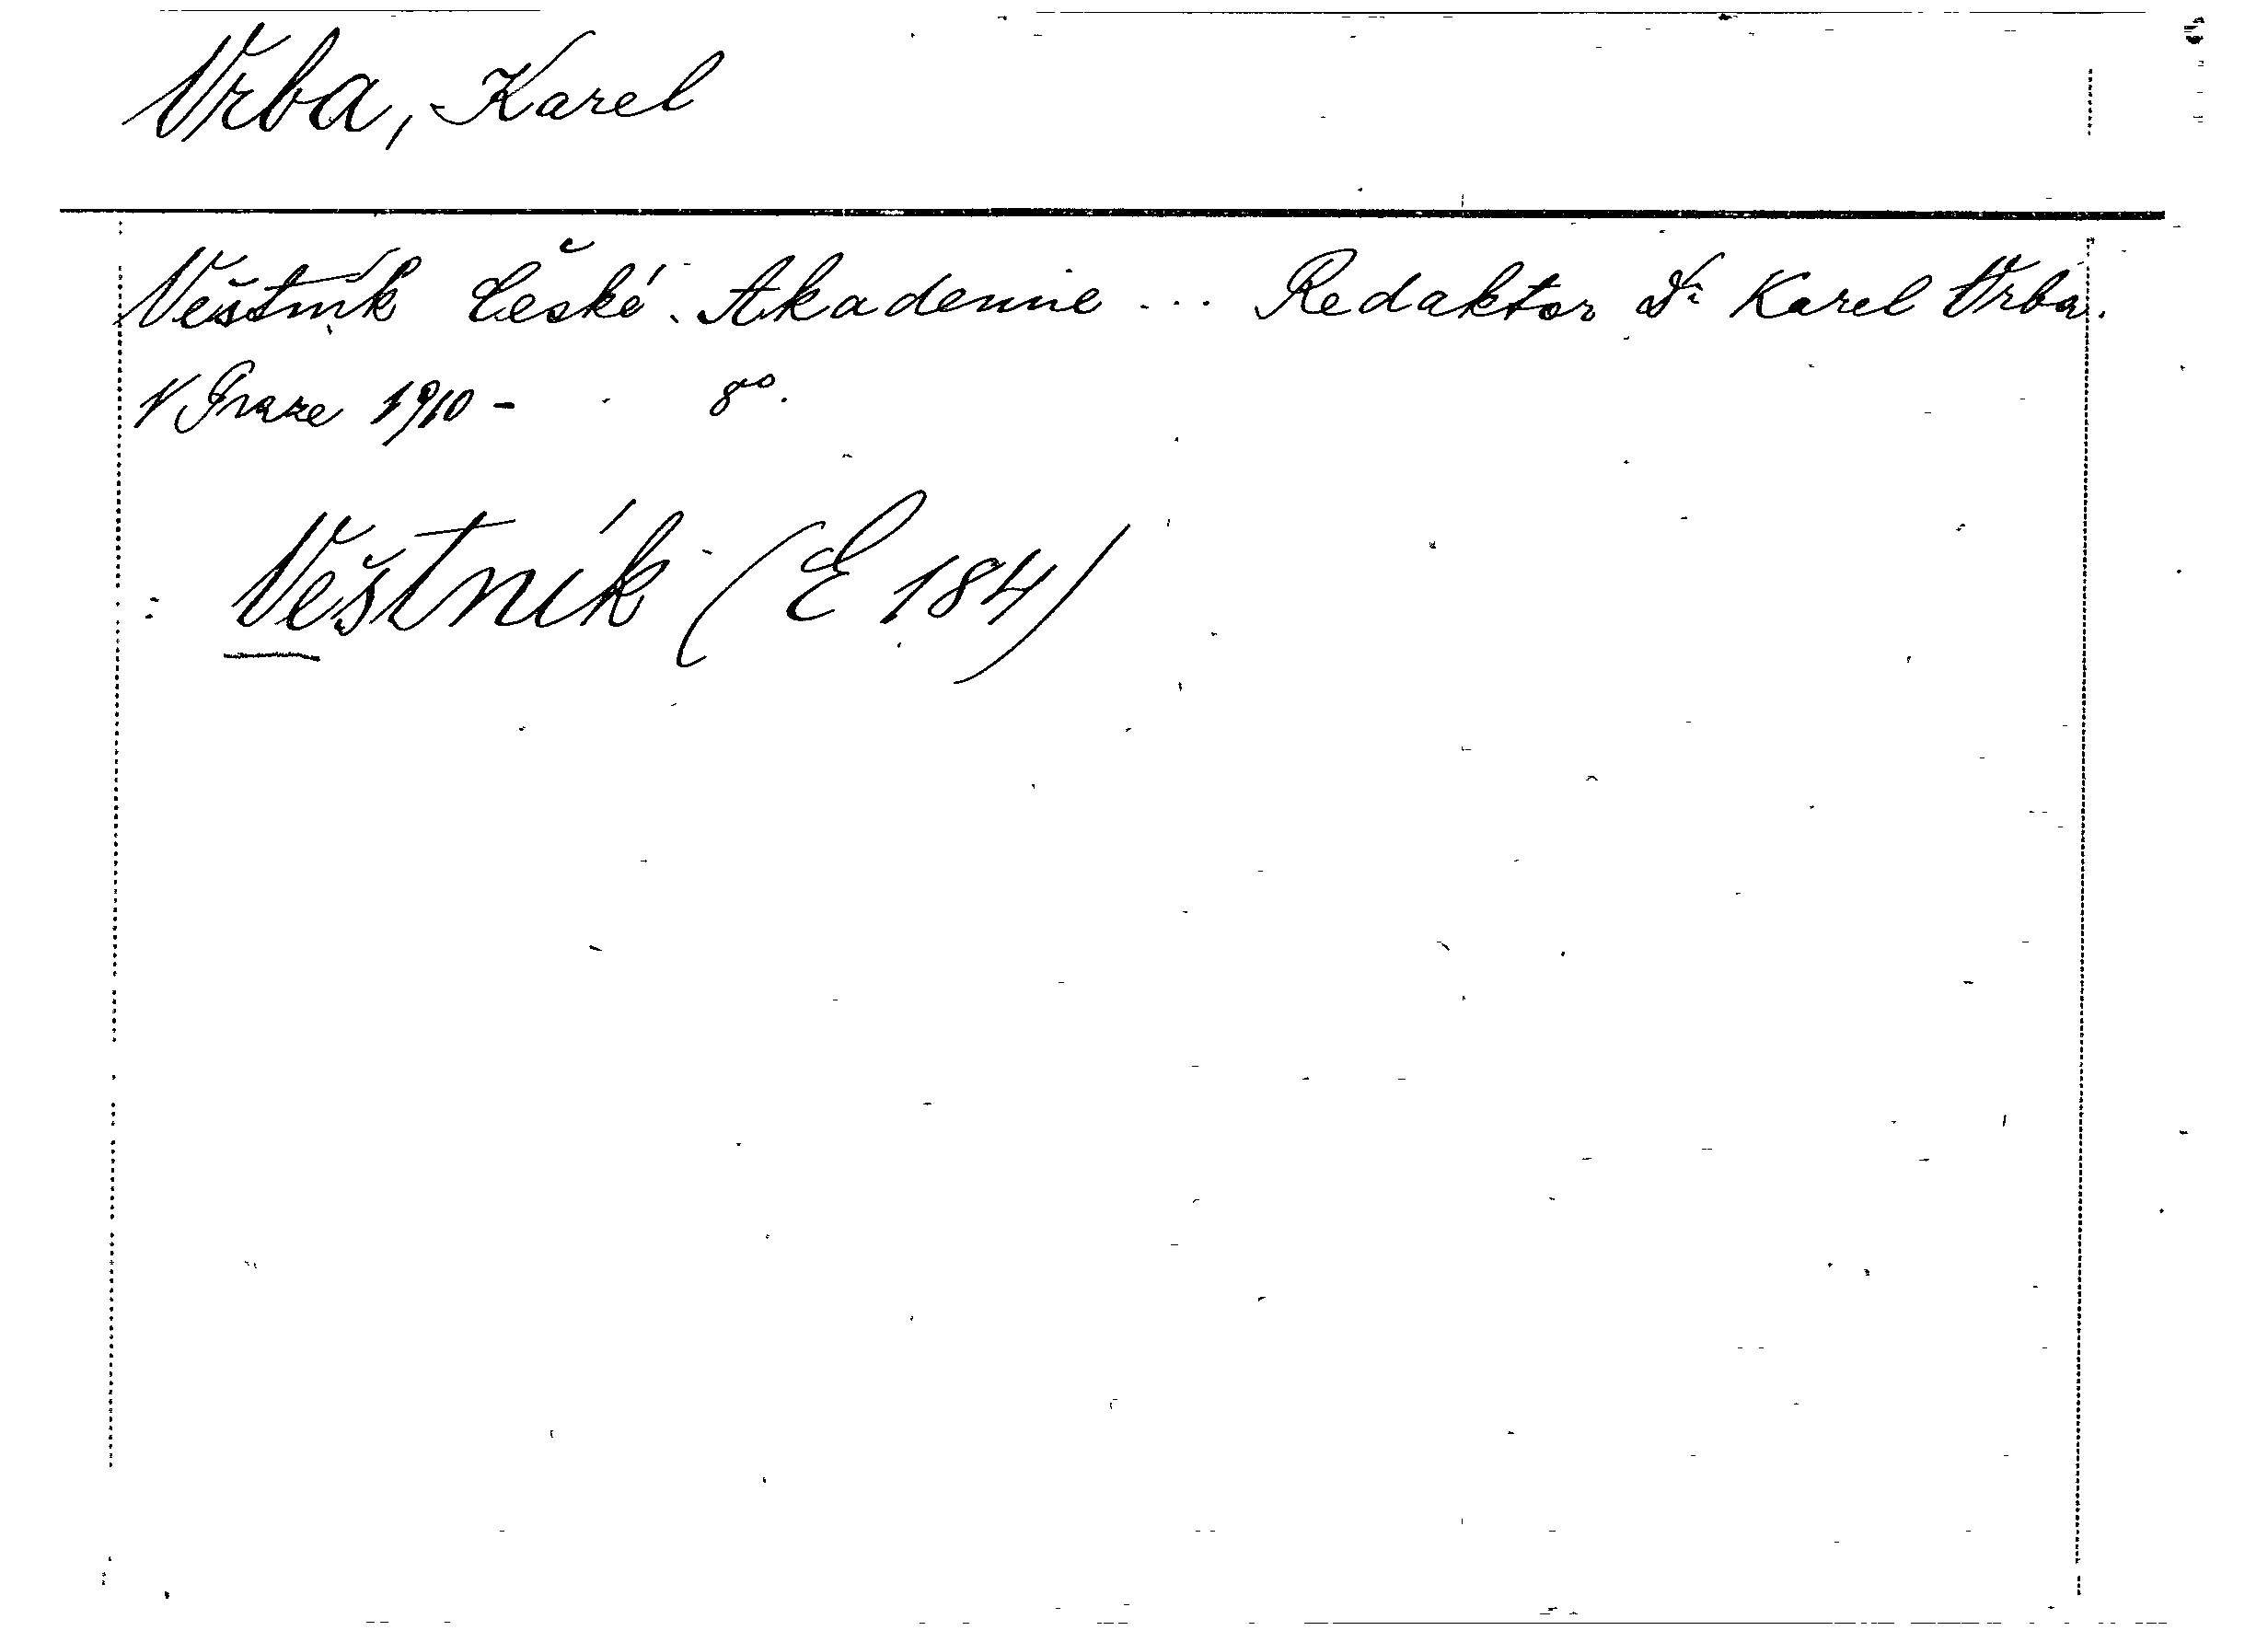 Vrba, Karel
Věstník České Akademie ... Redaktor Dr Karel Vrba.
V Praze 1910 - 8°.
Věstník (E 184)